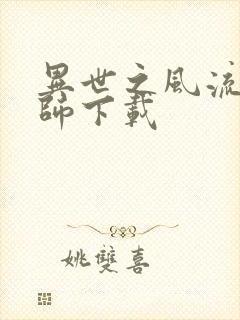 異世之風流
師下載
姚雙喜